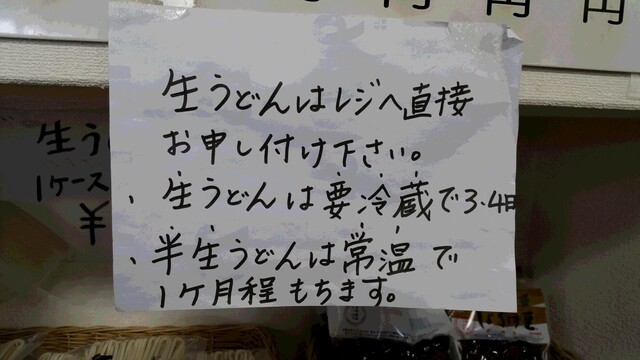 円 円 円
生うどんはレジへ直接
お申し付け下さい。
、生うどんは要冷蔵で3.4日
、半生うどんは常温で
1ケ月程もちます。
生う
1ケース
¥